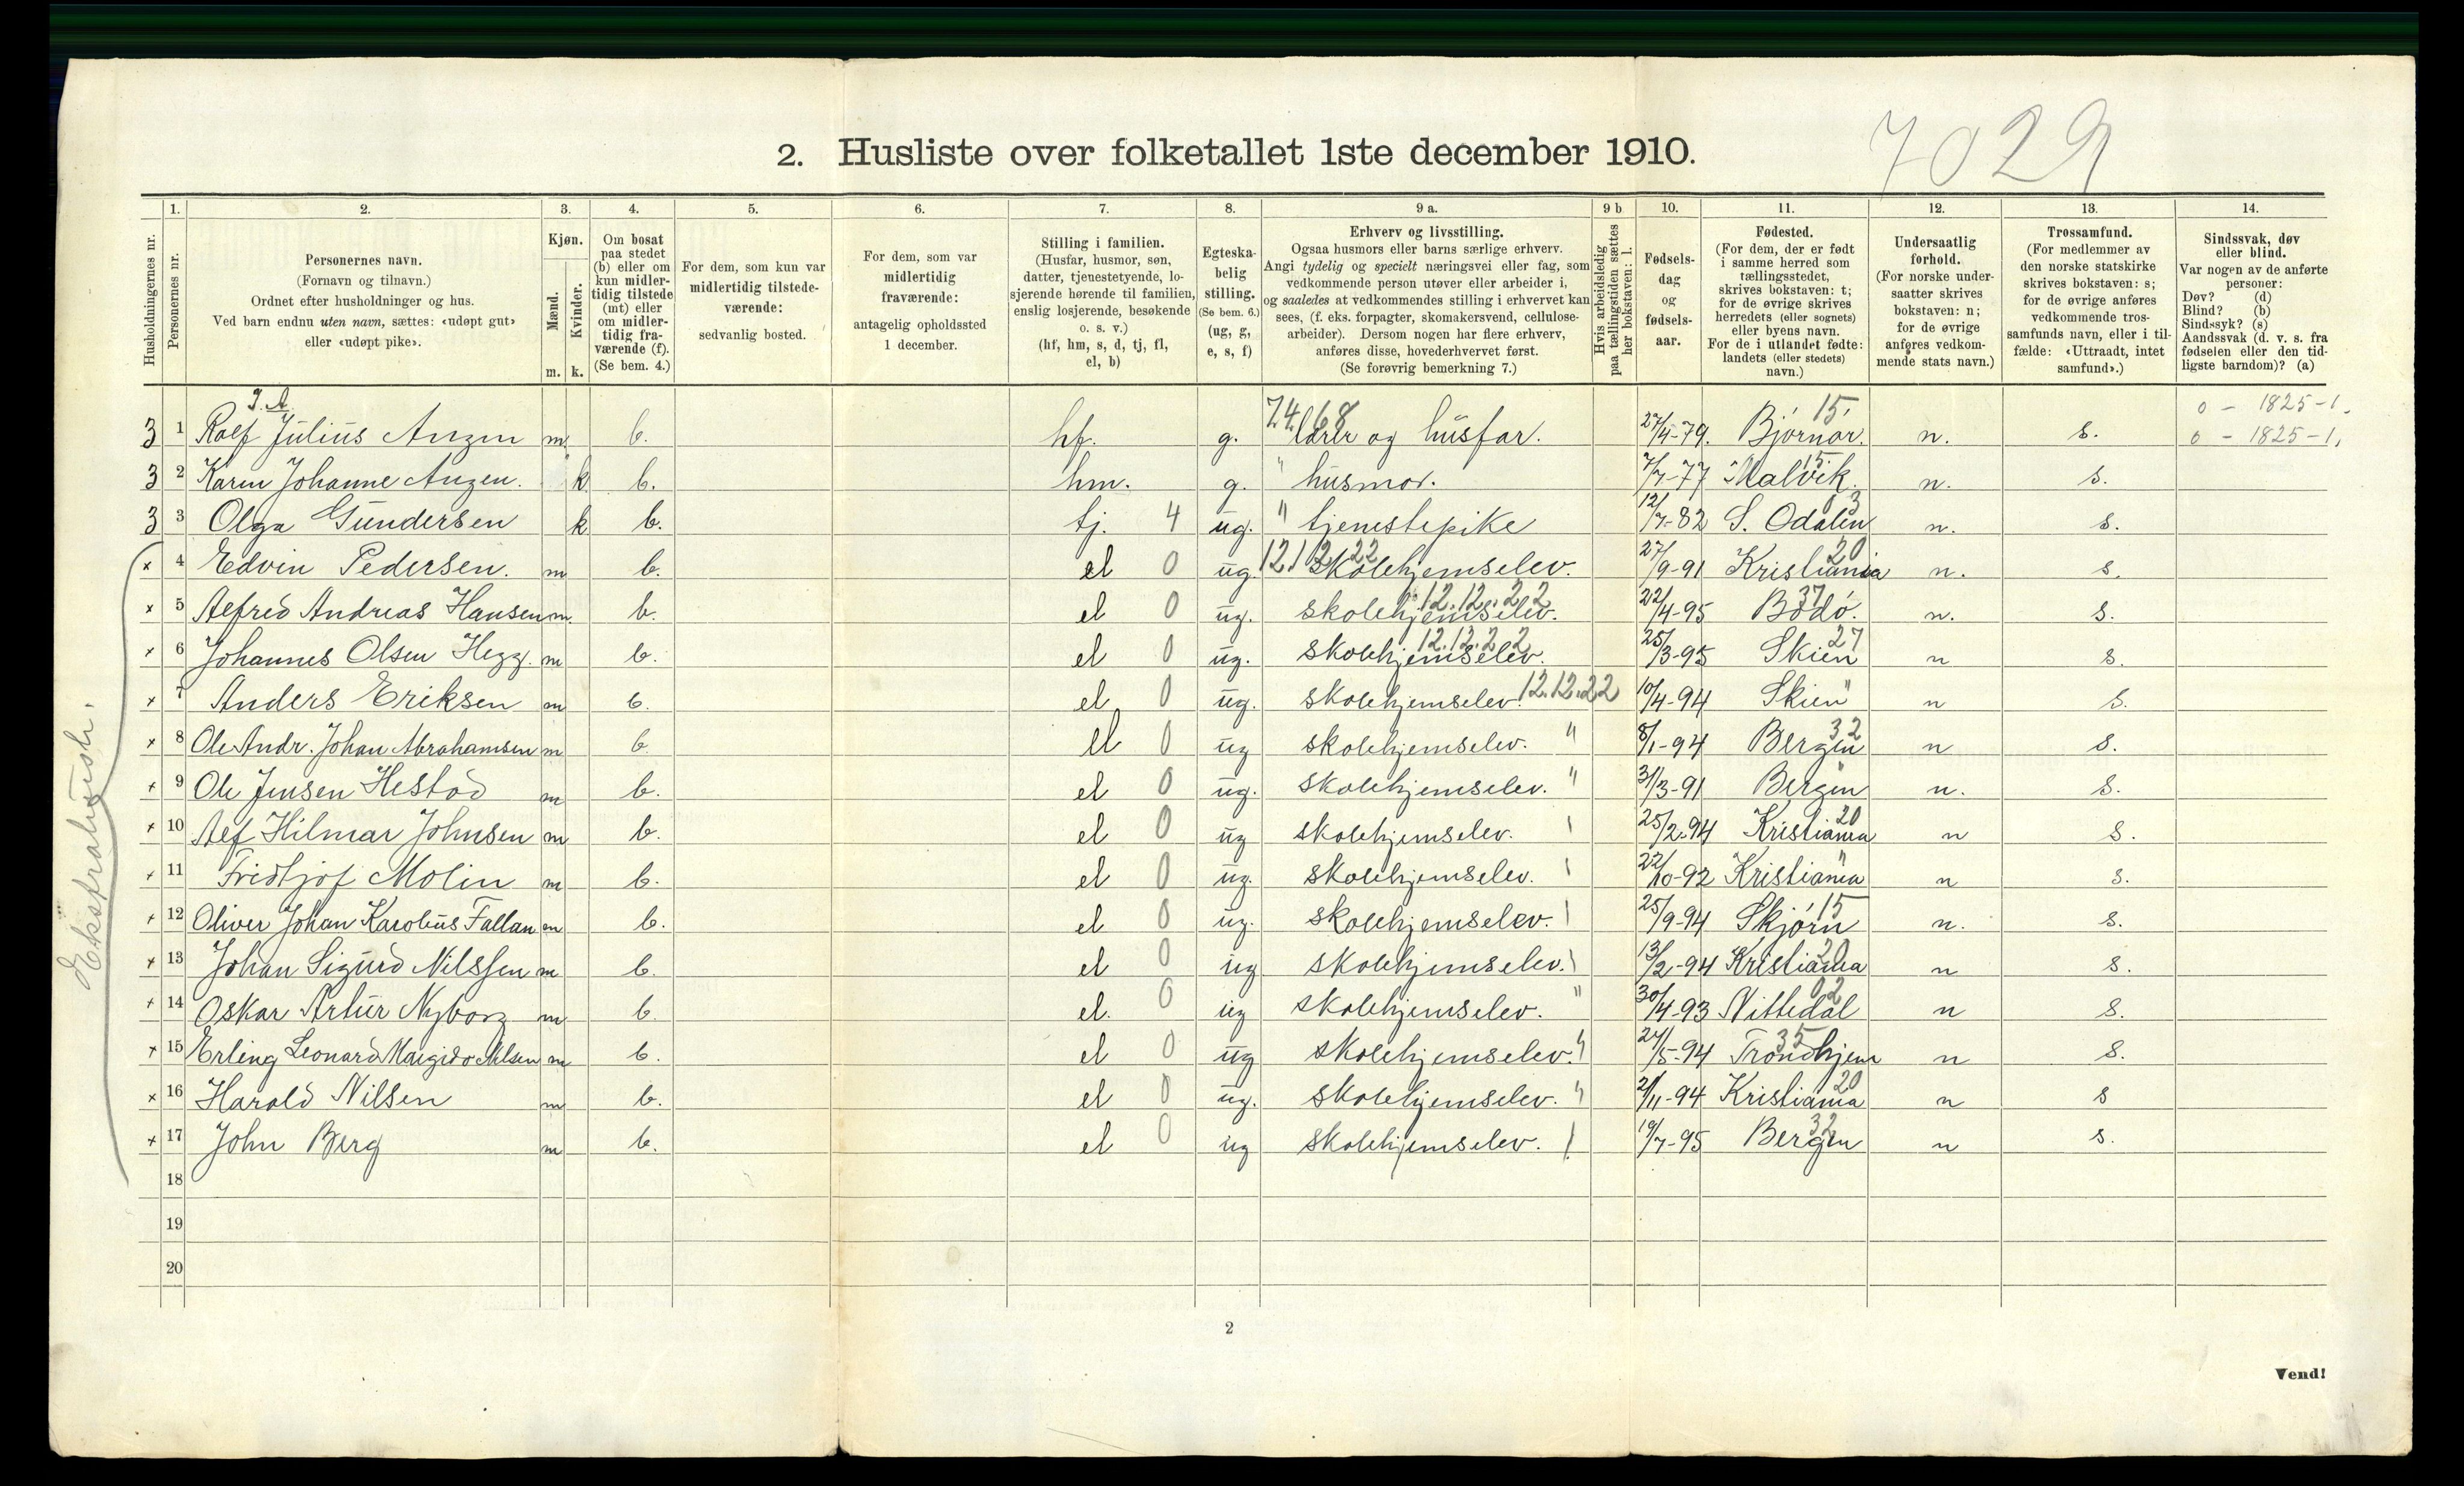 7029
2. Husliste over folketallet 1ste december 1910.
Husholdningernes nr.
1. Personernes nr.
2. Personernes navn.
(Fornavn og tilnavn.)
Ordnet efter husholdninger og hus.
Ved barn endnu uten navn, sættes: «udøpt gut»
eller «udøpt pike».
3. Kjøn.
Mænd. Kvinder.
m. k.
4. Om bosat
paa stedet
(b) eller om
kun midler-
tidig tilstede
(mt) eller
om midler-
tidig fra-
værende (f).
(Se bem. 4.)
5. For dem, som kun var
midlertidig tilstede-
værende:
sedvanlig bosted.
6. For dem, som var
midlertidig
fraværende:
antagelig opholdssted
1 december.
7. Stilling i familien.
(Husfar, husmor, søn,
datter, tjenestetyende, lo-
sjerende hørende til familien,
enslig losjerende, besøkende
o. s. v.)
(hf, hm, s, d, tj, fl,
el, b)
8. Egteska-
belig
stilling.
(Se bem. 6.)
(ug, g,
e, s, f)
9 a. Erhverv og livsstilling.
Ogsaa husmors eller barns særlige erhverv.
Angi tydelig og specielt næringsvei eller fag, som
vedkommende person utøver eller arbeider i,
og saaledes at vedkommendes stilling i erhvervet kan
sees, (f. eks. forpagter, skomakersvend, cellulose-
arbeider). Dersom nogen har flere erhverv,
anføres disse, hovederhvervet først.
(Se forøvrig bemerkning 7.)
9 b Hvis arbeidsledig
paa tællingstiden sættes
her bokstaven: l.
10. Fødsels-
dag
og
fødsels-
aar.
11. Fødested.
(For dem, der er født
i samme herred som
tællingsstedet,
skrives bokstaven: t;
for de øvrige skrives
herredets (eller sognets)
eller byens navn.
For de i utlandet fødte:
landets (eller stedets)
navn.)
12. Undersaatlig
forhold.
(For norske under-
saatter skrives
bokstaven: n;
for de øvrige
anføres vedkom-
mende stats navn.)
13. Trossamfund.
(For medlemmer av
den norske statskirke
skrives bokstaven: s;
for de øvrige anføres
vedkommende tros-
samfunds navn, eller i til-
fælde: «Uttraadt, intet
samfund».)
14. Sindssvak, døv
eller blind.
Var nogen av de anførte
personer:
Døv? (d)
Blind? (b)
Sindssyk? (s)
Aandssvak (d. v. s. fra
fødselen eller den tid-
ligste barndom)? (a)
0 - 1825-1.
3 1 Rolf Julius Anzen m. b. hf. g. 74.68 lærer og husfar. 27/4-79. Bjørnør. 15 n. s. 0 - 1825-1,
3 2 Karen Johanne Anzen. k. b. hm. g. " husmor. 7/7-77 Malvik. 15 n. s.
3 3 Olga Gundersen k b. tj. 4 ug. " tjenestepike 12/7-82 S. Odalen 03 n. s.
x 4 Edvin Pedersen. m b. el 0 ug. 12.12.22 skolehjemselev. 27/9-91 Kristiania 20 n. s.
x 5 Alfred Andreas Hansen m. b. el 0 ug. skolehjemselev. 12.12.22 22/4-95 Bodø. 37 n. s.
x 6 Johannes Olsen Hegg. m b. el 0 ug. skolehjemselev. 12.12.22 25/3-95 Skien 27 n s.
x 7 Anders Eriksen m b. el 0 ug. skolehjemselev. 12.12.22 10/4-94 Skien " n s.
x 8 Ole Andr. Johan Abrahamsen m b el 0 ug skolehjemselev. " 8/1-94 Bergen 32 n s.
x 9 Ole Jensen Hestad m b. el 0 ug. skolehjemselev. " 31/3-91 Bergen n. s.
x 10 Alf Hilmar Johnsen m b. el 0 ug skolehjemselev. 25/2-94 Kristiania 20 n s.
x 11 Fridtjof Molin m b. el 0 ug. skolehjemselev. 22/10-92 Kristiania n s.
x 12 Oliver Johan Karolius Fallan m b. el 0 ug. skolehjemselev. 25/9-94 Skjørn 15 n. s.
x 13 Johan Sigurd Nilssen m b. el 0 ug skolehjemselev. 13/2-94 Kristiania 20 n s.
x 14 Oskar Artur Nyborg m b. el. 0 ug skolehjemselev. " 30/4-93 Nittedal 02 n s.
x 15 Erling Leonard Nilsen m b. el 0 ug skolehjemselev. " 24/5-94 Trondhjem 35 n s.
x 16 Harald Nilsen m b. el 0 ug. skolehjemselev. " 2/11-94 Kristiania 20 n s
x 17 John Berg m b. el 0 ug skolehjemselev. 19/7-95 Bergen 32 n s.
18
19
20
Ekstrahush.
2
Vend!